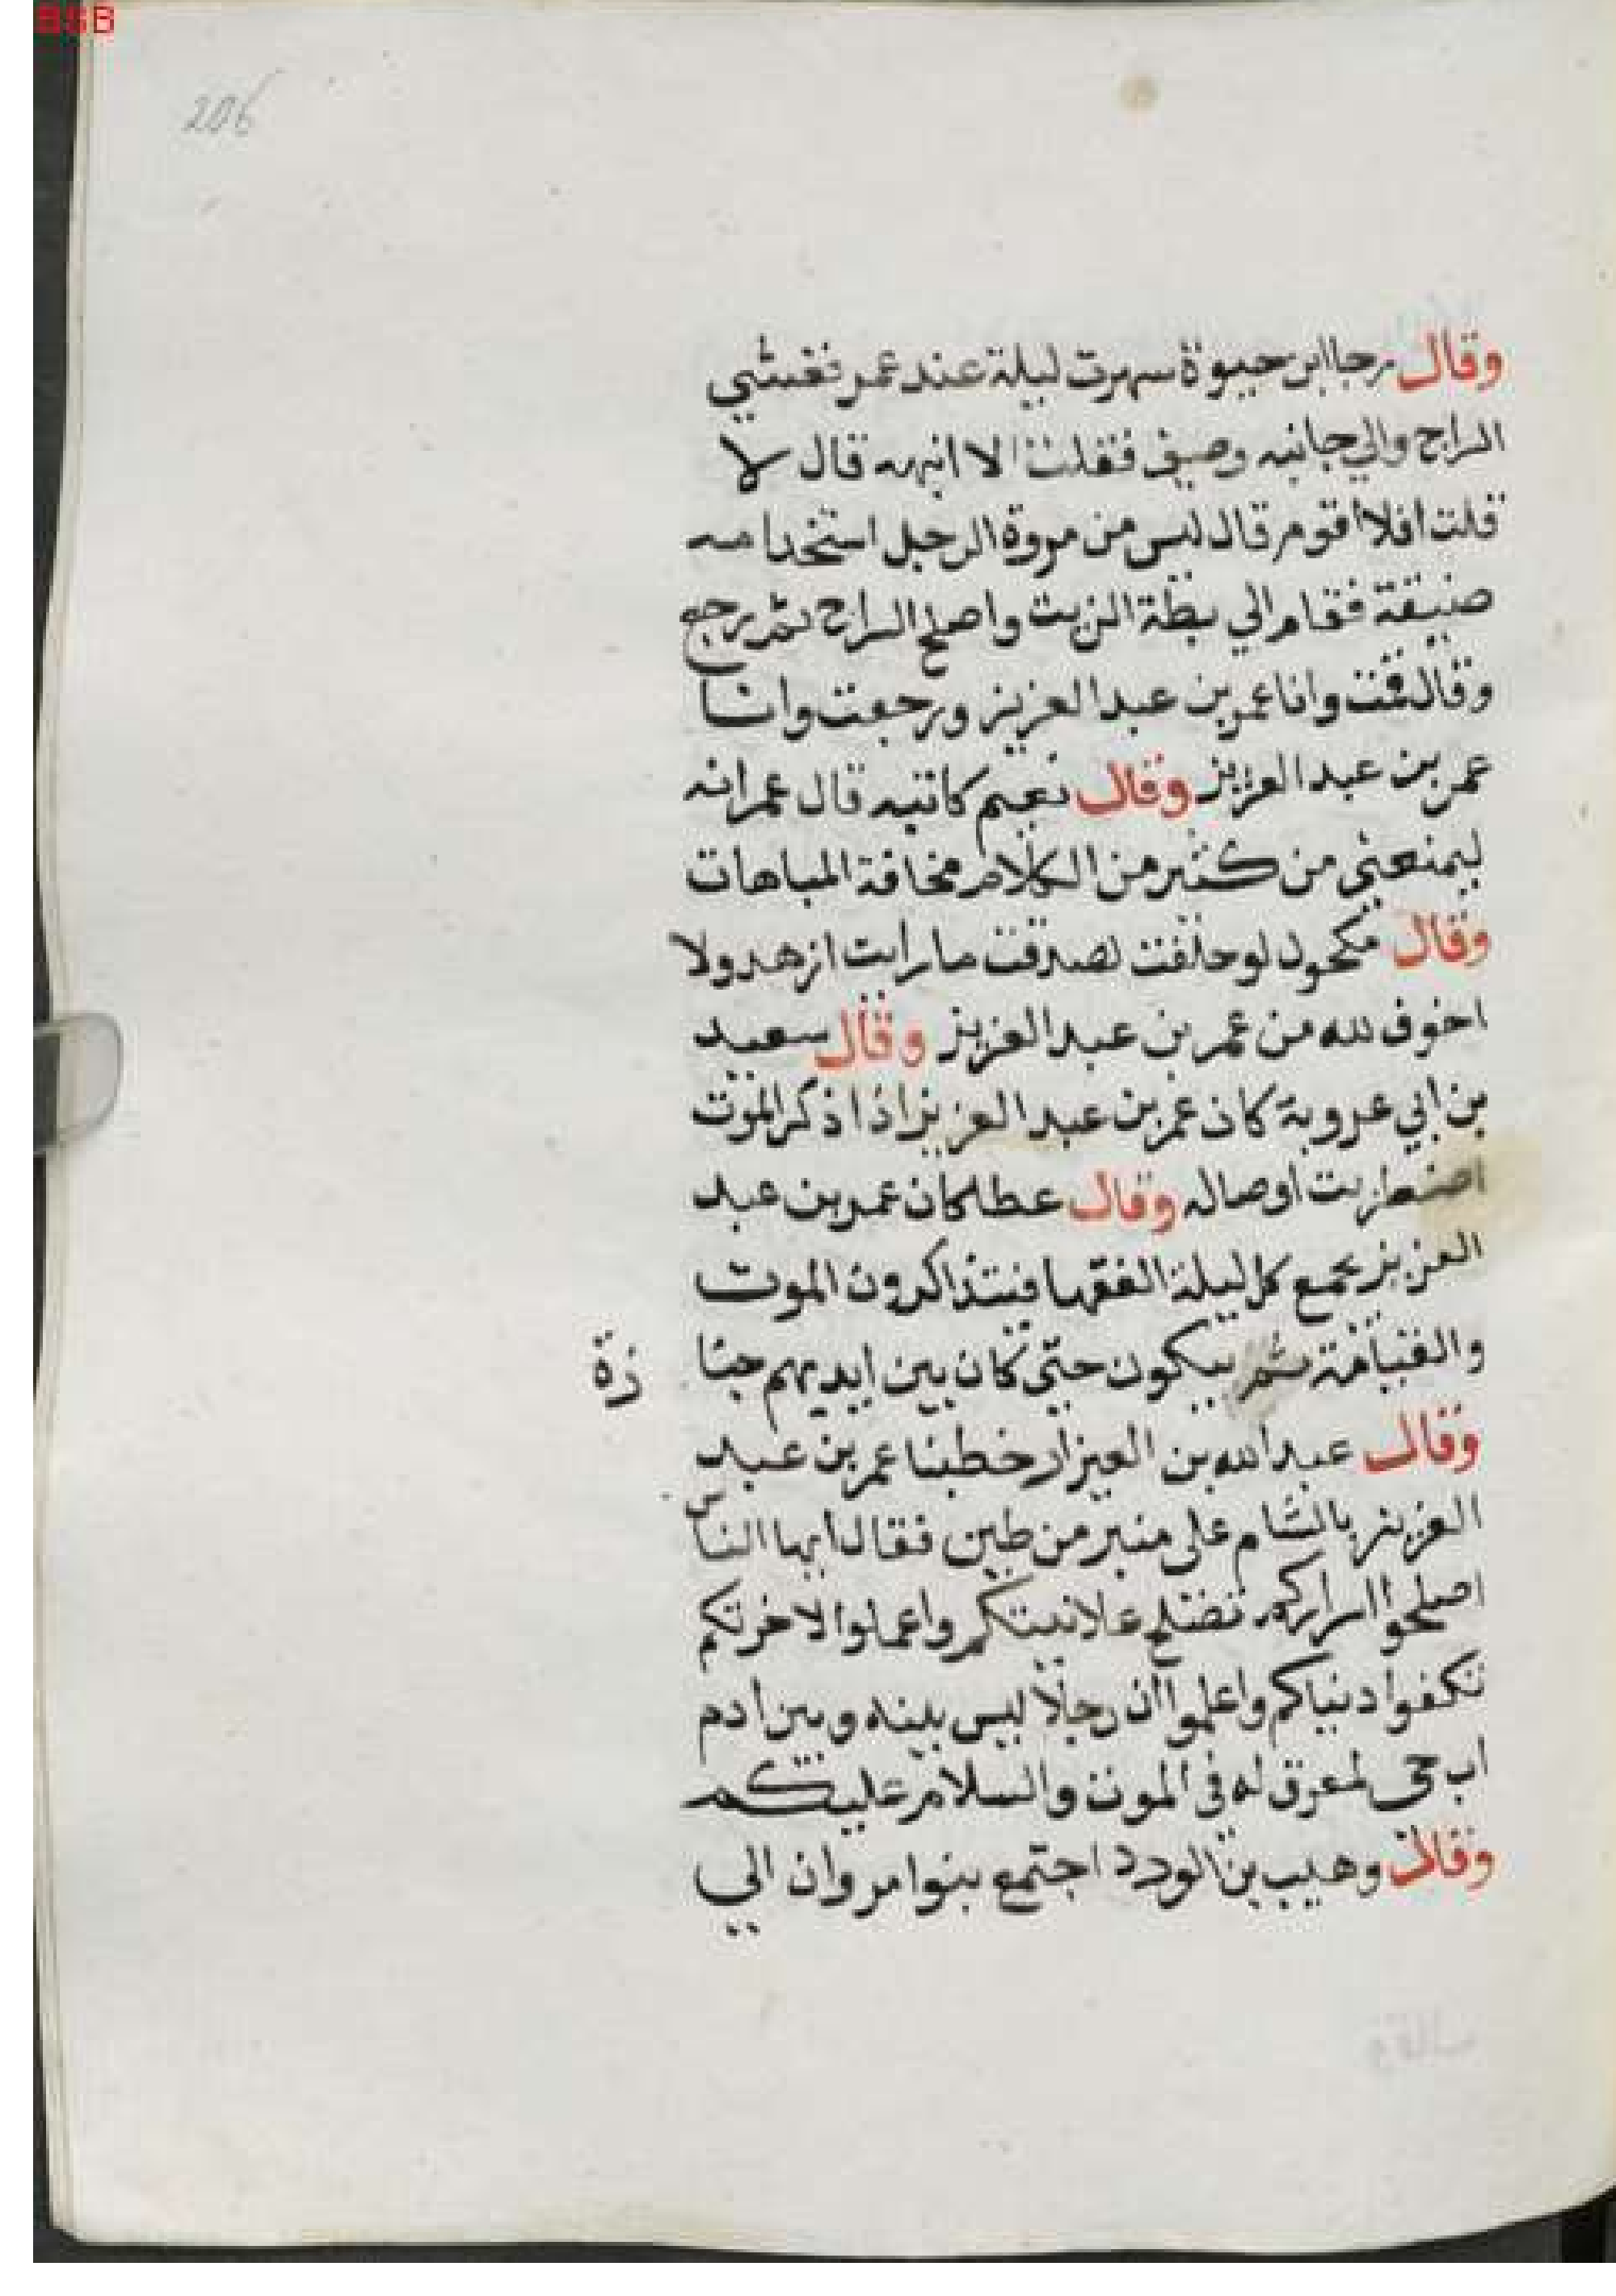 BSB
206
وقال رجا ابن حيوة سهرت ليلة عند عمر فغشي
الراج والي جانبه وصيف فقلت الا انبهه قال لا
قلت افلا اقوم قال ليس من مروة الرجل استخدامه
ضيفة فقام الي بطة الزيت واصلح السراج ثم رجع
وقال قمت وانا عمر بن عبد العزيز ورجعت وانا
عمر بن عبد العزيز وقال نعيم كاتبه قال عمر انه
ليمنعني من كثير من الكلام مخافة المباهات
وقال مكحول لو حلفت لصدقت ما رايت ازهد ولا
اخوف لله من عمر بن عبد العزيز وقال سعيد
بن ابي عروبة كان عمر بن عبد العزيز اذا ذكر الموت
اضطربت اوصاله وقال عطا كان عمر بن عبد
العزيز يجمع كل ليلة الفقها فيتذاكرون الموت
والقيامة ثم يبكون حتي كان بين ايديهم جنازة
وقال عبد الله بن العيزار خطبنا عمر بن عبد
العزيز بالشام على منبر من طين فقال ايها الناس
اصلحوا اسراركم تصلح علانيتكم واعملوا لاخرتكم
تكفوا دنياكم واعلموا ان رجلا ليس بينه وبين ادم
اب حى لمعرق له فى الموت والسلام عليكم
وقال وهيب بن الورد اجتمع بنوا مروان الي